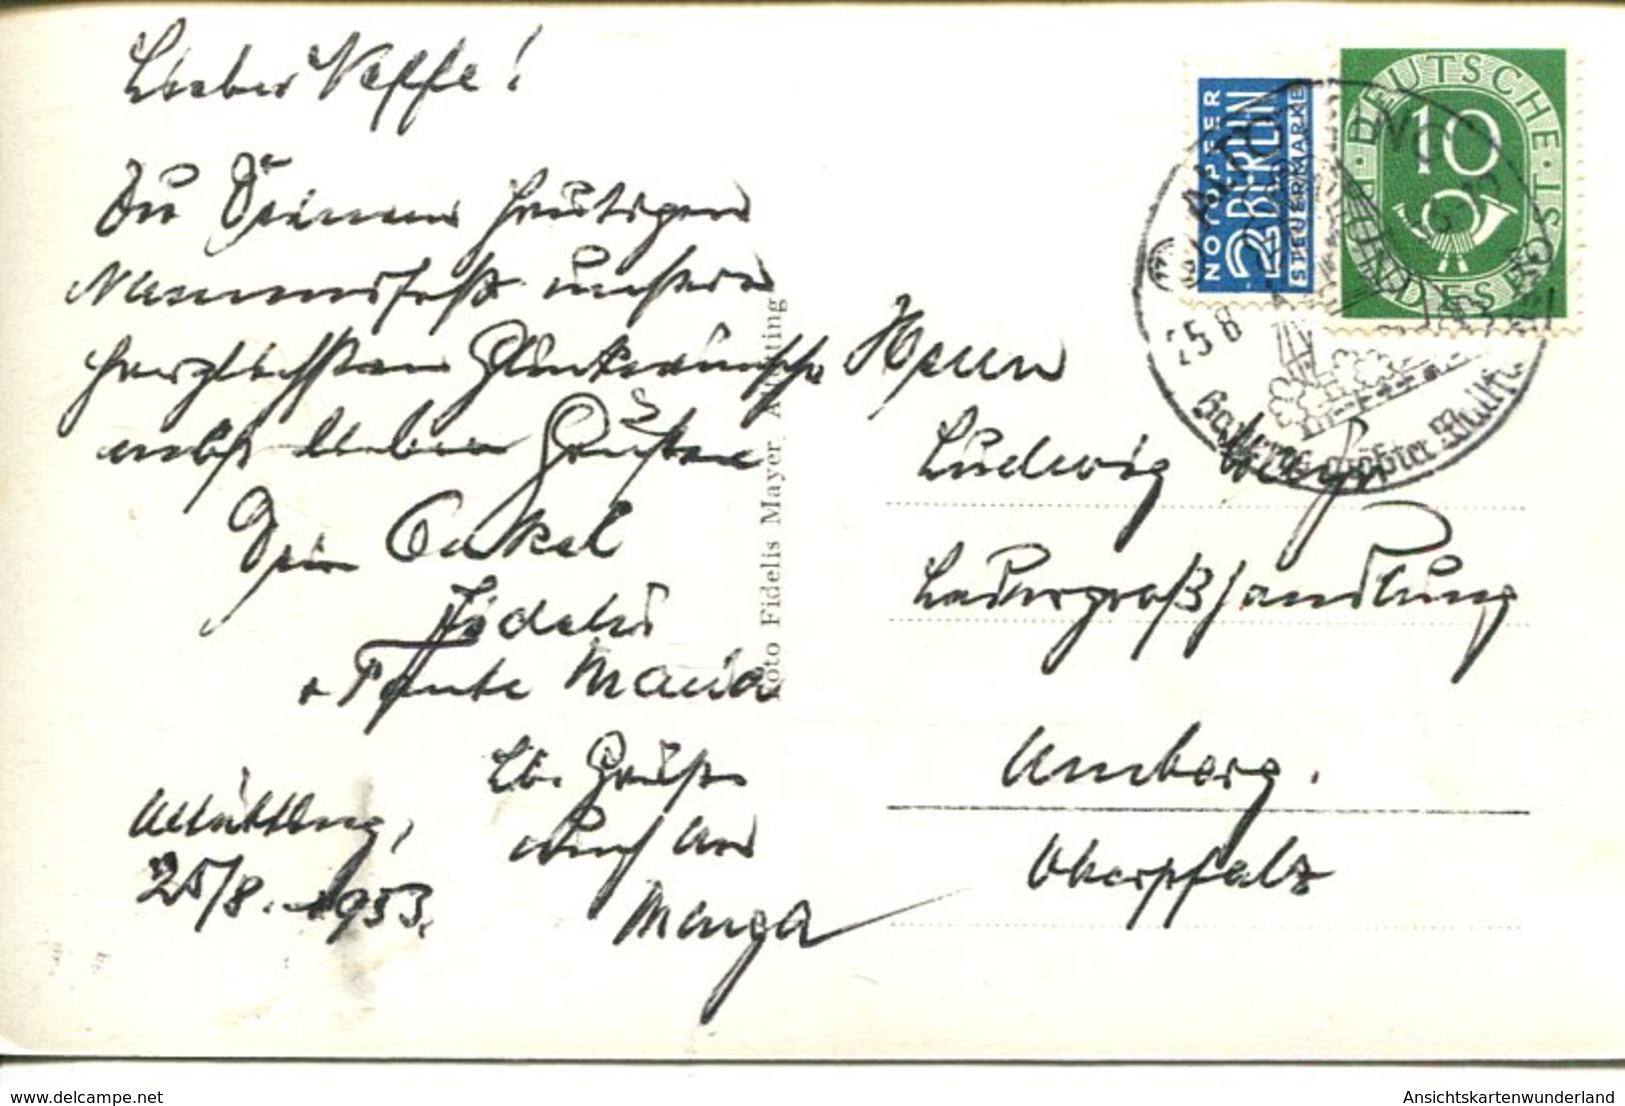 Lieber Neffe!
Zu Deinem heutigen
Namensfest unsere
herzlichsten Glückwünsche
nebst lieben Grüßen
Dein Onkel
Fidelis
+ Tante Maria
Lb. Grüße
auch an
Marga
Altötting,
25/8. 1953.
Foto Fidelis Mayer, Altötting
NOTOPFER
2 BERLIN
STEUERMARKE
DEUTSCHE BUNDESPOST
10
25.8
Bayerns größter Wallf.
Herrn
Ludwig
Ledergroßhandlung
Amberg.
Oberpfalz
www.delcampe.net
Ansichtskartenwunderland